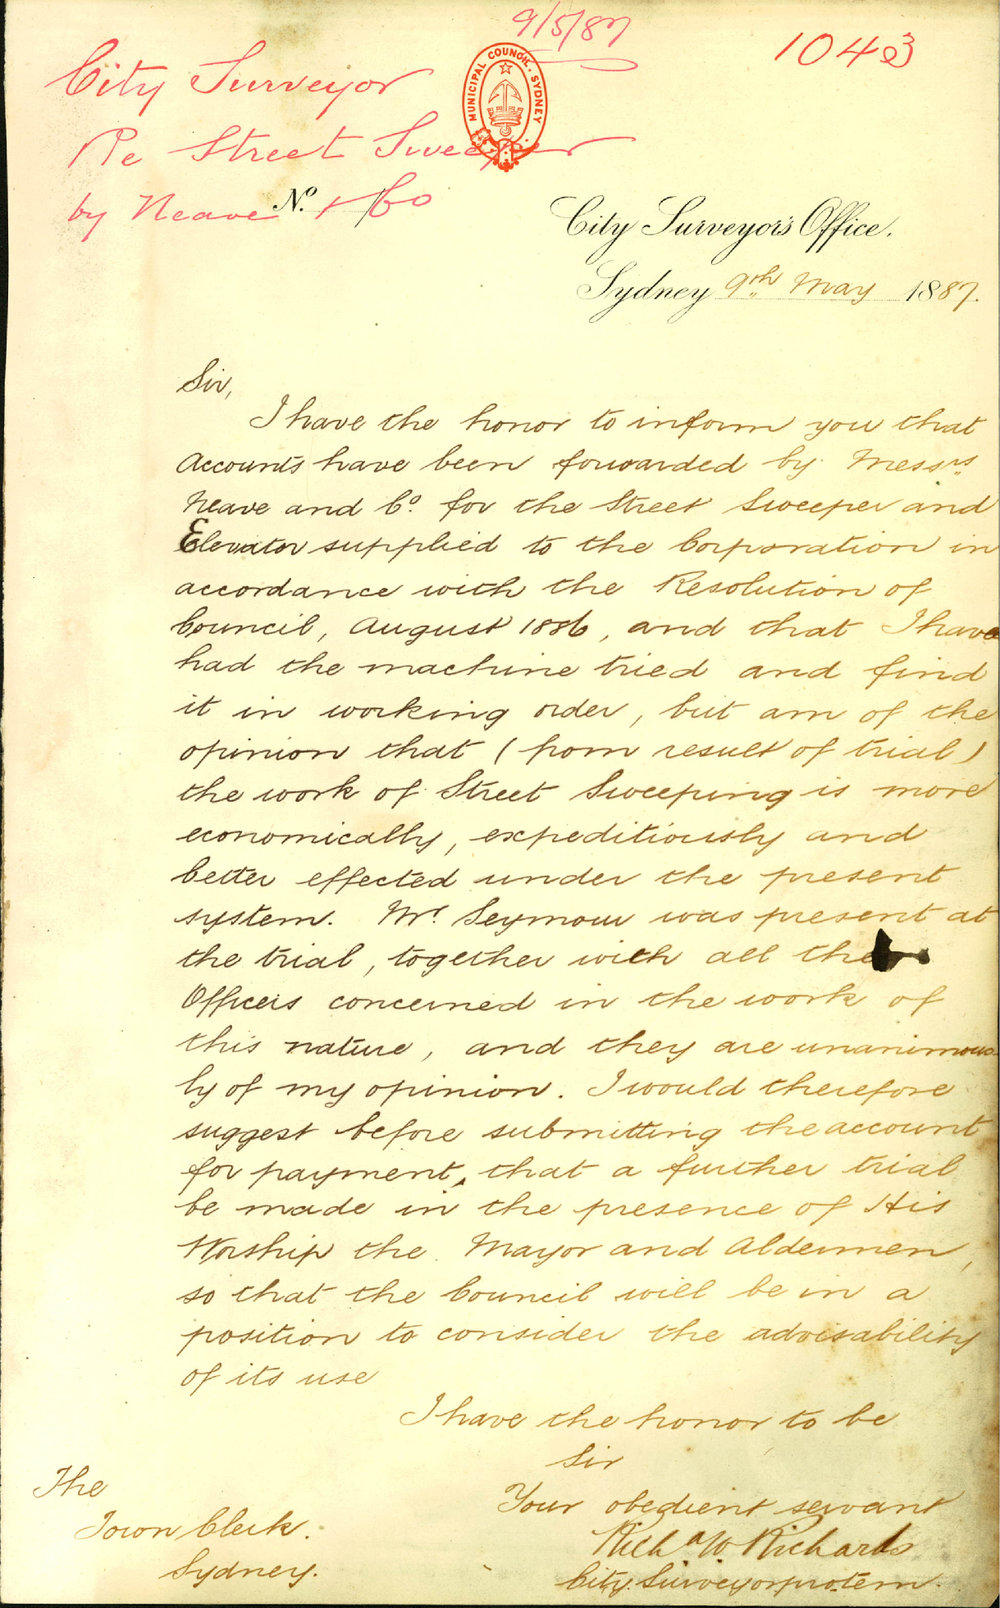 9/5/87
1043
City Surveyor
Re Street Sweeper
by Neave & Co
MUNICIPAL COUNCIL. SYDNEY
No.
City Surveyor's Office.
Sydney 9th May 1887.
Sir,
I have the honor to inform you that
Accounts have been forwarded by Messrs
Neave and Co. for the Street Sweeper and
Elevator supplied to the Corporation in
accordance with the Resolution of
Council, August 1886, and that I have
had the machine tried and find
it in working order, but am of the
opinion that (from result of trial)
the work of Street Sweeping is more
economically, expeditiously and
better effected under the present
system. Mr. Seymour was present at
the trial, together with all the
Officers concerned in the work of
this nature, and they are unanimous-
ly of my opinion. I would therefore
suggest before submitting the account
for payment, that a further trial
be made in the presence of His
Worship the Mayor and Aldermen,
so that the Council will be in a
position to consider the advisability
of its use
I have the honor to be
Sir
Your obedient servant
Richd W Richards
City Surveyor protem.
The
Town Clerk.
Sydney.